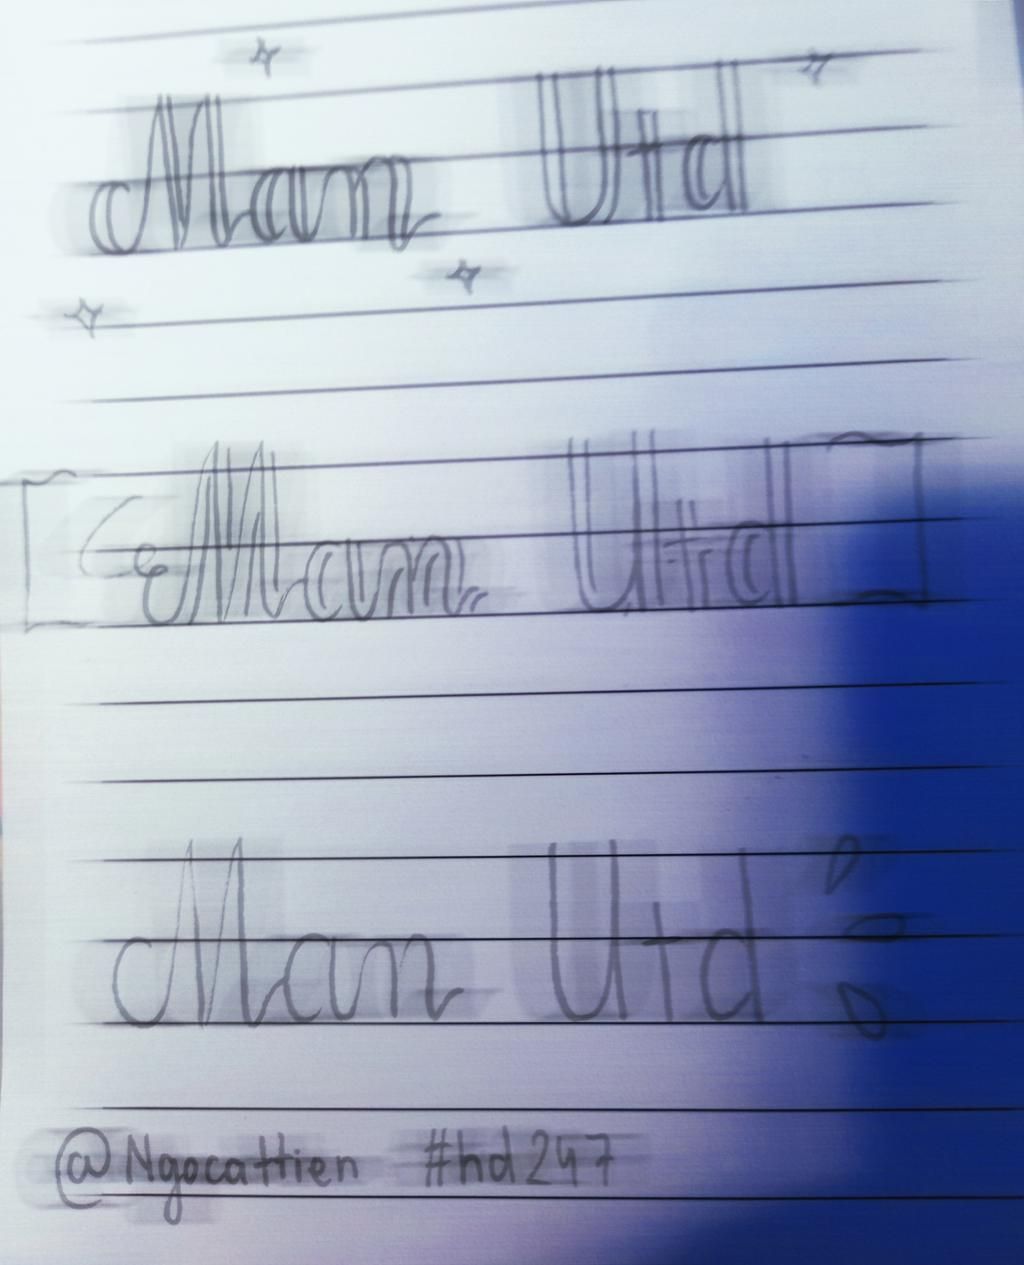 Man Utd
Man Utd
Man Utd
@Ngocattien #hd247